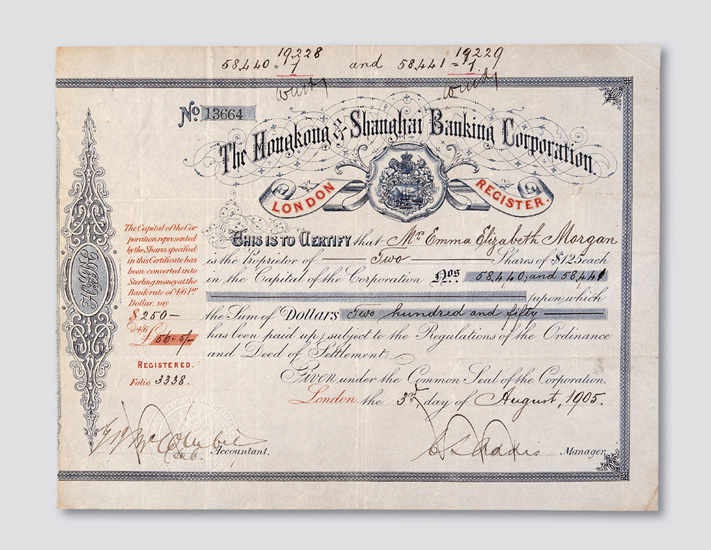 58,440 = 19228/1 and 58,441 = 19229/1
No. 13664
The Hongkong & Shanghai Banking Corporation.
LONDON REGISTER.
The Capital of the Cor
poration represented
by the Shares specified
in this Certificate has
been converted into
Sterling money at the
Bank rate of 4/6 Pr
Dollar, say
$250—
@4/6
£ 56.5/-
REGISTERED.
Folio 3338.
THIS IS TO CERTIFY that Mrs Emma Elizabeth Morgan
is the Proprietor of Two Shares of $125 each
in the Capital of the Corporation Nos 58,440, and 58,441
upon which
the Sum of Dollars Two hundred and fifty
has been paid up, subject to the Regulations of the Ordinance
and Deed of Settlement.
Given under the Common Seal of the Corporation,
London the 3rd day of August, 1905.
Accountant.
Manager.